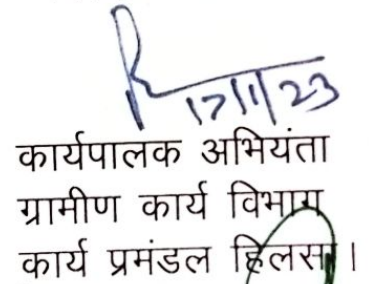 17/11/23
कार्यपालक अभियंता
ग्रामीण कार्य विभाग
कार्य प्रमंडल हिलसा।